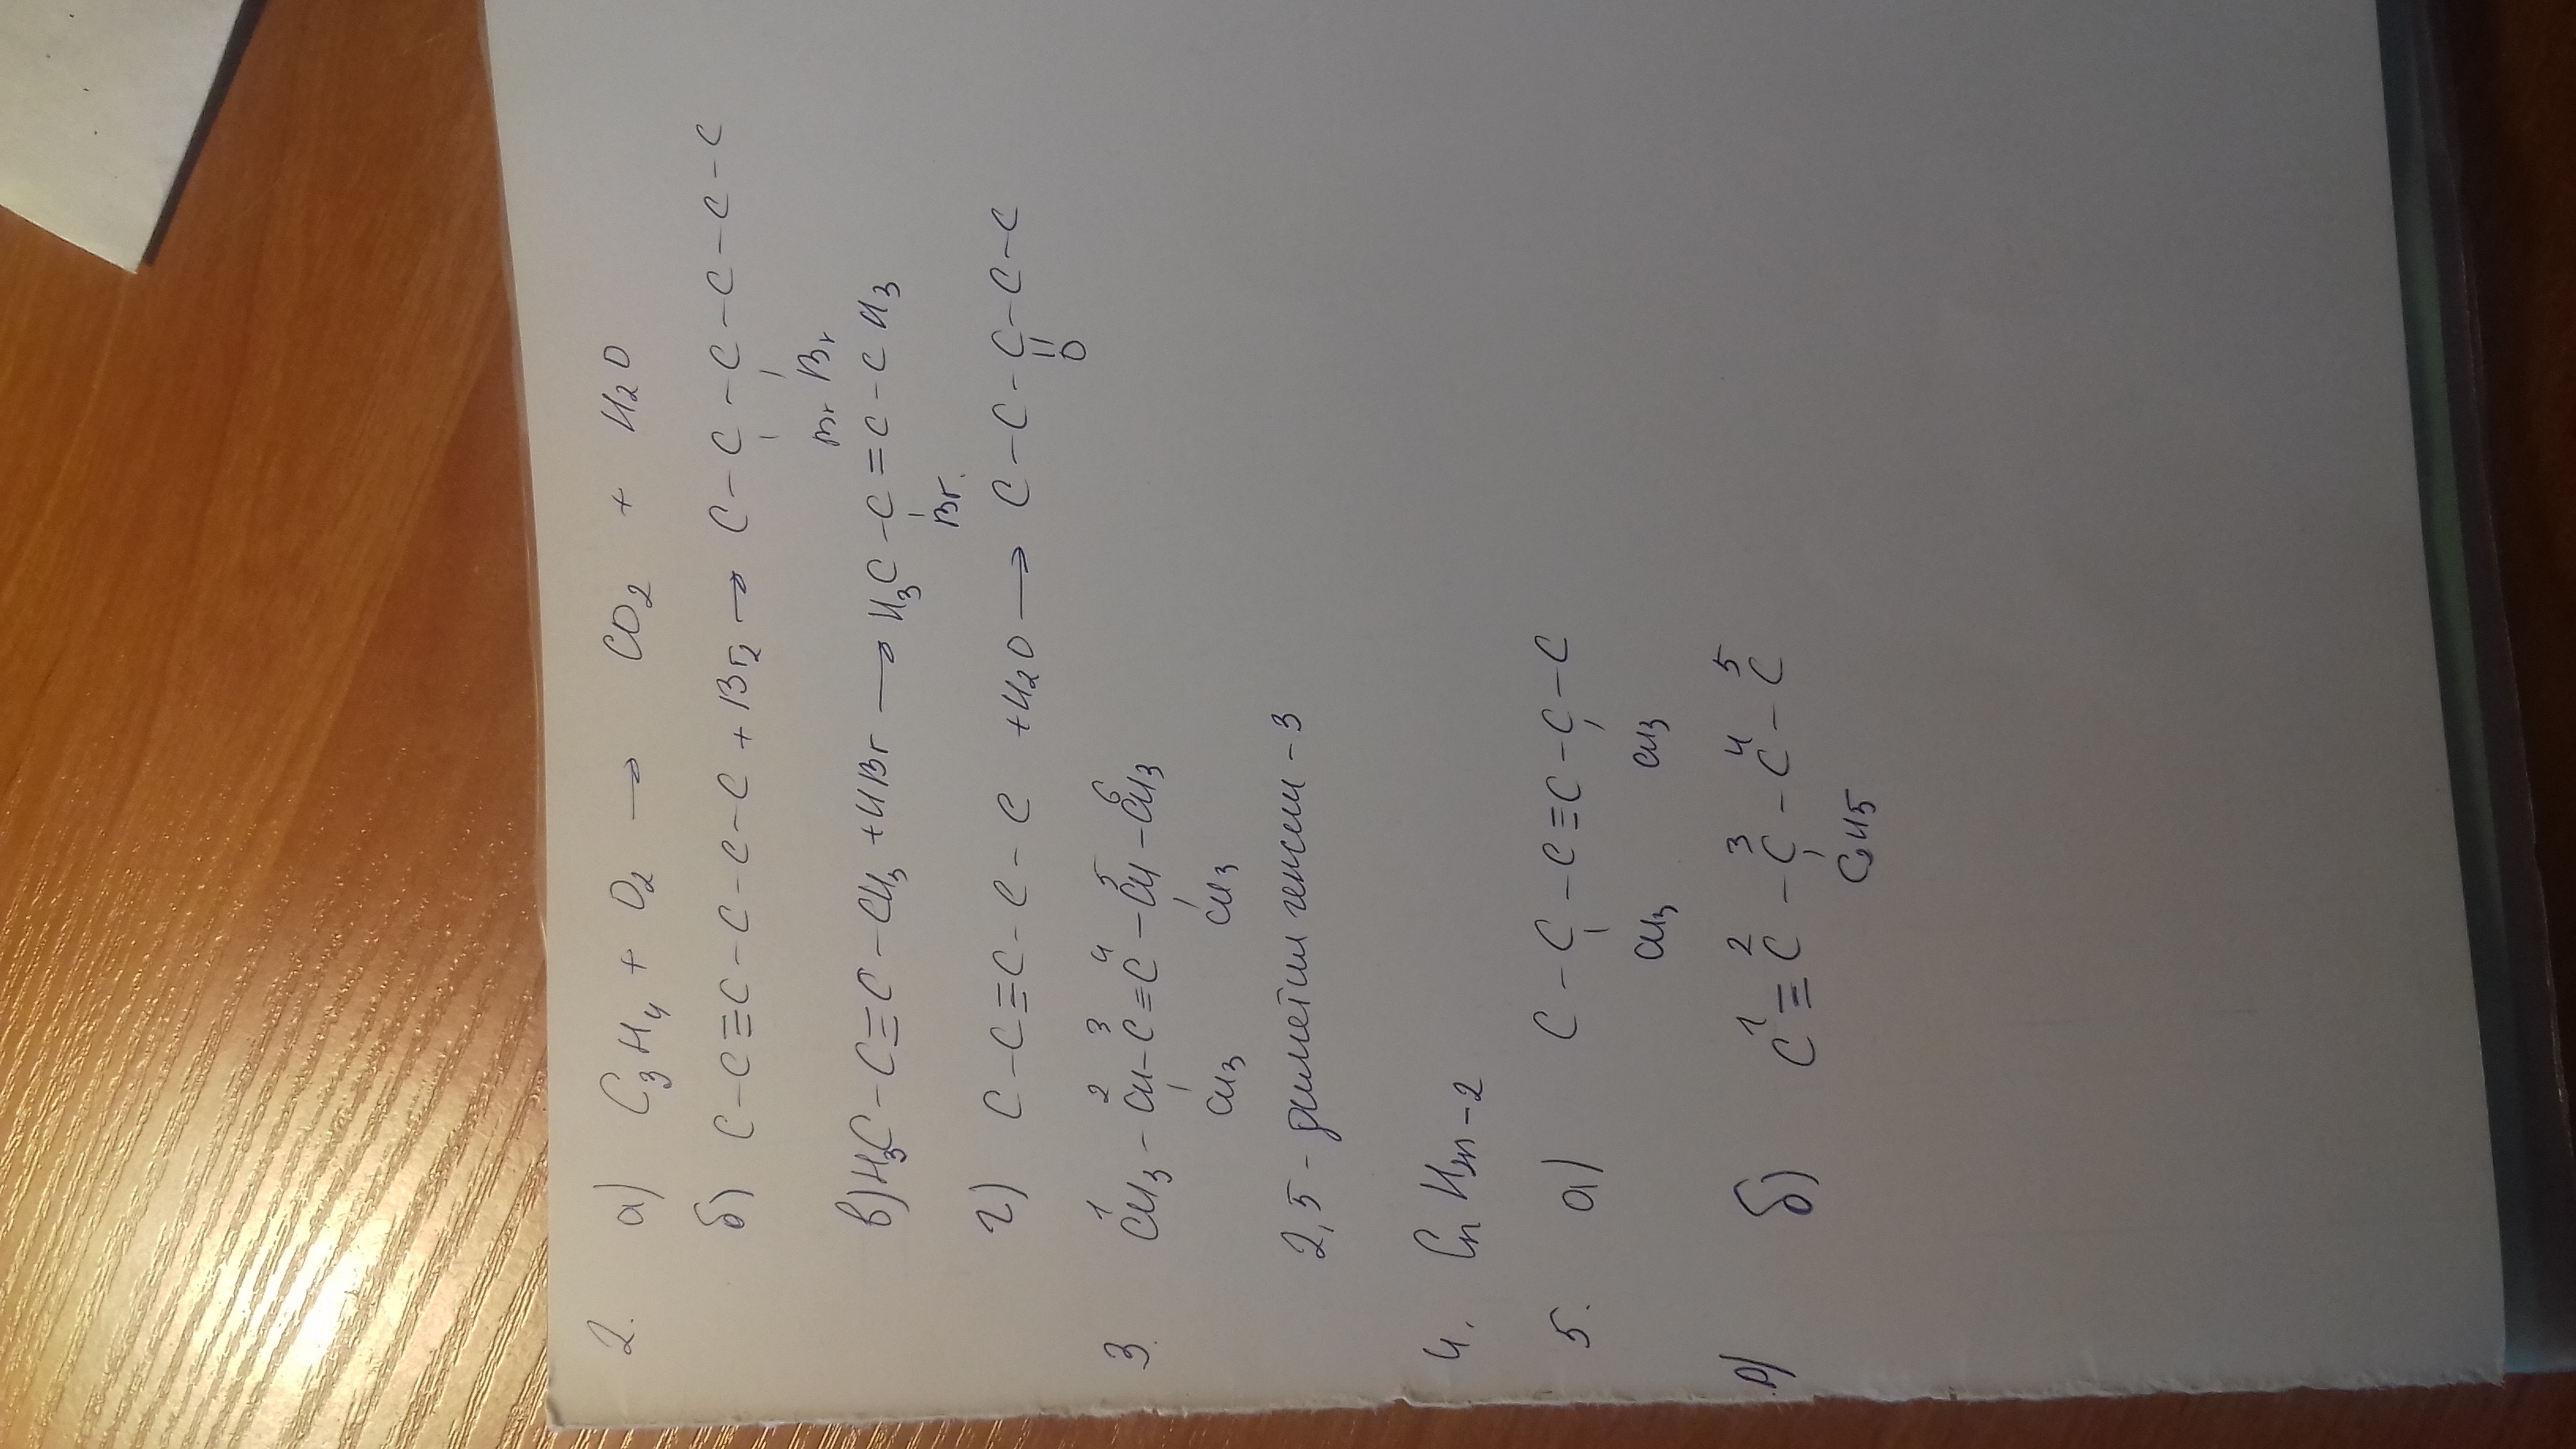 2. а) C₃H₄ + O₂ → CO₂ + H₂O
б) C – C ≡ C – C – C – C + Br₂ → C – C – C – C – C – C
Br Br
в) H₃C – C ≡ C – CH₃ + HBr → H₃C – C = C – CH₃
Br
г) C – C ≡ C – C – C + H₂O → C – C – C – C – C
O
1 2 3 4 5 6
3. CH₃ – CH – C ≡ C – CH – CH₃
CH₃ CH₃
2,5 – диметил гексин – 3
4. CnH2n–2
5. а) C – C – C ≡ C – C – C
CH₃ CH₃
1 2 3 4 5
б) C ≡ C – C – C – C
C₂H₅